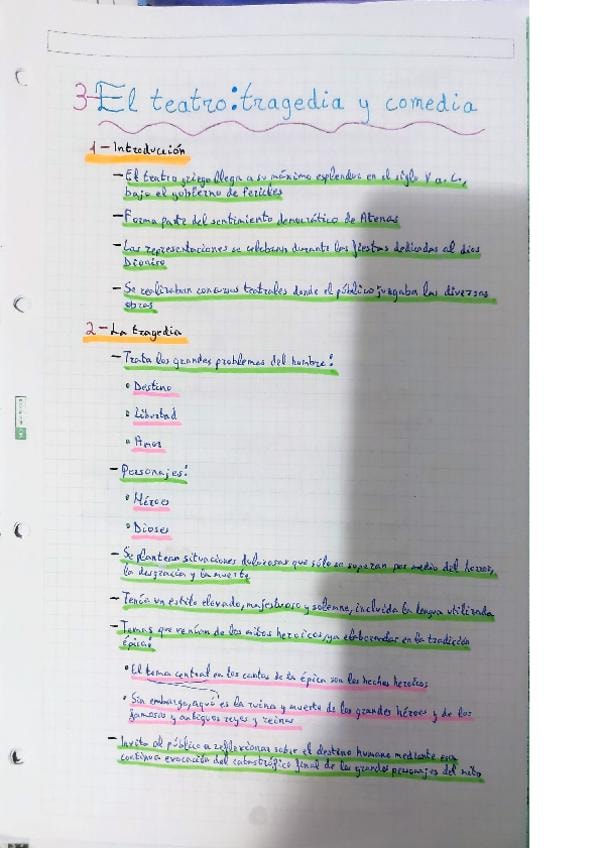 3-El teatro:tragedia y comedia
1-Introducción
-El teatro griego llega a su máximo esplendor en el siglo V a. C.,
bajo el gobierno de Pericles
-Forma parte del sentimiento democrático de Atenas
-Las representaciones se celebran durante las fiestas dedicadas al dios
Dioniso
-Se realizaban concursos teatrales donde el público juzgaba las diversas
obras
2-La tragedia
-Trata los grandes problemas del hombre:
•Destino
•Libertad
•Amor
-Personajes:
•Héroes
•Dioses
-Se plantean situaciones dolorosas que sólo se superan por medio del horror,
la desgracia y la muerte
-Tenía un estilo elevado, majestuoso y solemne, incluida la lengua utilizada
-Temas que venían de los mitos heroicos, ya elaborados en la tradición
épica:
•El tema central en los cantos de la épica son los hechos heroicos
•Sin embargo, aquí es la ruina y muerte de los grandes héroes y de los
famosos y antiguos reyes y reinas
-Invita al público a reflexionar sobre el destino humano mediante esa
continua evocación del catastrófico final de los grandes personajes del mito